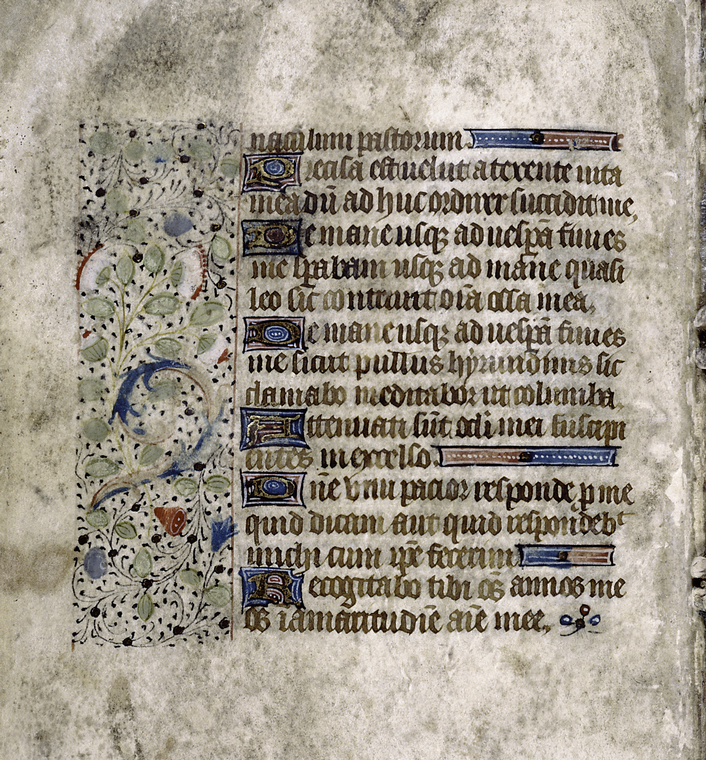 naculum pastorum
Precisa est velut a texente vita
mea dū ad huc ordirer succidit me,
De mane usqȝ ad vesp̄a finies
me sp̄abam usqȝ ad mane quasi
leo sic contrivit oīa ossa mea,
De mane usqȝ ad vesp̄a finies
me sicut pullus hyrundinis sic
clamabo meditabor ut columba.
Attenuati sūt ocli mei suscipi
entes in excelso
Dñe vim pacior responde p me
quid dicam aut quid respondebᵗ
michi cum ip̄e fecerim
Recogitabo tibi oȓs annos me
os ī amaritudīe aīe mee,